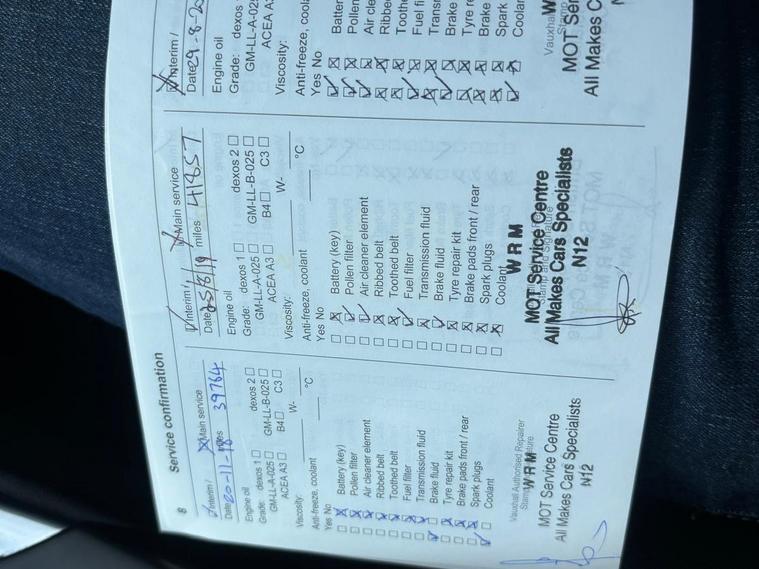 8
Service confirmation
Interim / Main service
Date 20-11-18 miles 39764
Engine oil
Grade: dexos 1 dexos 2
GM-LL-A-025 GM-LL-B-025
ACEA A3 B4 C3
Viscosity: W-
Anti-freeze, coolant °C
Yes No
Battery (key)
Pollen filter
Air cleaner element
Ribbed belt
Toothed belt
Fuel filter
Transmission fluid
Brake fluid
Tyre repair kit
Brake pads front / rear
Spark plugs
Coolant
Vauxhall Authorised Repairer
WRM
MOT Service Centre
All Makes Cars Specialists
N12
Interim / Main service
Date 25/8/19 miles 41857
Engine oil
Grade: dexos 1 dexos 2
GM-LL-A-025 GM-LL-B-025
ACEA A3 B4 C3
Viscosity: W-
Anti-freeze, coolant °C
Yes No
Battery (key)
Pollen filter
Air cleaner element
Ribbed belt
Toothed belt
Fuel filter
Transmission fluid
Brake fluid
Tyre repair kit
Brake pads front / rear
Spark plugs
Coolant
WRM
MOT Service Centre
All Makes Cars Specialists
N12
Interim /
Date 29.8.20
Engine oil
Grade: dexos
GM-LL-A-02
ACEA A3
Viscosity:
Anti-freeze, coolan
Yes No
Batter
Pollen
Air cle
Ribbed
Toothe
Fuel fi
Transm
Brake
Tyre re
Brake
Spark
Coolant
Vauxhall
W
MOT Ser
All Makes C